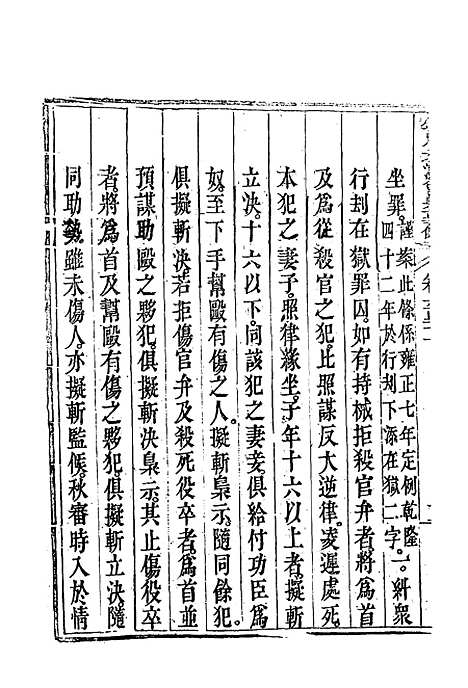 坐罪。謹案此條係雍正七年定例乾隆四十二年於行刦下添在獄二字。一糾衆
行刦在獄罪囚。如有持械拒殺官弁者。將爲首
及爲從殺官之犯。比照謀反大逆律。凌遲處死。
本犯之妻子。照律緣坐。子年十六以上者。擬斬
立決。十六以下。同該犯之妻妾。俱給付功臣爲
奴。至下手幫毆有傷之人。擬斬梟示。隨同餘犯。
俱擬斬決。若拒傷官弁及殺死役卒者。爲首並
預謀助毆之夥犯。俱擬斬決梟示。其止傷役卒
者。將爲首及幫毆有傷之夥犯。俱擬斬立決。隨
同助勢。雖未傷人。亦擬斬監候。秋審時入於情